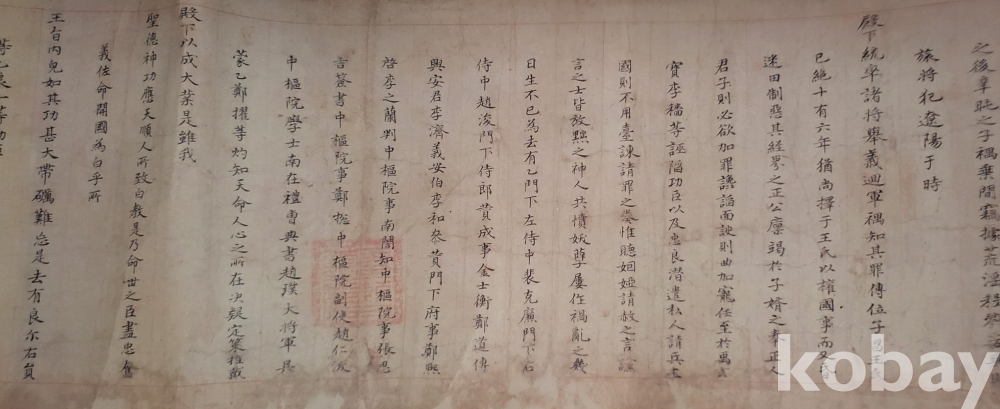 之後辜旽之子禑乗間竊據荒淫
旅將犯遼陽于時
殿下統率諸將舉義廻軍禑知其罪傳位子昌王
已絕十有六年猶尚擇于王氏以權國事而又
迷田制惡其經界之正公廩竭於子婿之奉正人
君子則必欲加罪讒諂面諛則曲加寵任至於禹玄
寶李穡等誣陷功臣以及忠良潛遣私人請兵上
國則不用臺諫請罪之章惟聽姻婭請赦之言讜
言之士皆放黜之神人共憤妖孽屢作禍亂之幾
日生不已為去有乙門下左侍中裴克廉門下右
侍中趙浚門下侍郎贊成事金士衡鄭道傳
興安君李濟義安伯李和參贊門下府事鄭熙
啓李之蘭判中樞院事南誾知中樞院事張思
吉簽書中樞院事鄭摠中樞院副使趙仁沃
中樞院學士南在禮曹典書趙璞大將軍吳
蒙乙鄭擢等灼知天命人心之所在決疑定策推戴
殿下以成大業是雖我
聖德神功應天順人所致白教是乃命世之臣盡忠奮
義佐命開國為白乎所
王旨內皃如其功甚大帶礪難忘是去有良尔右員
kobay